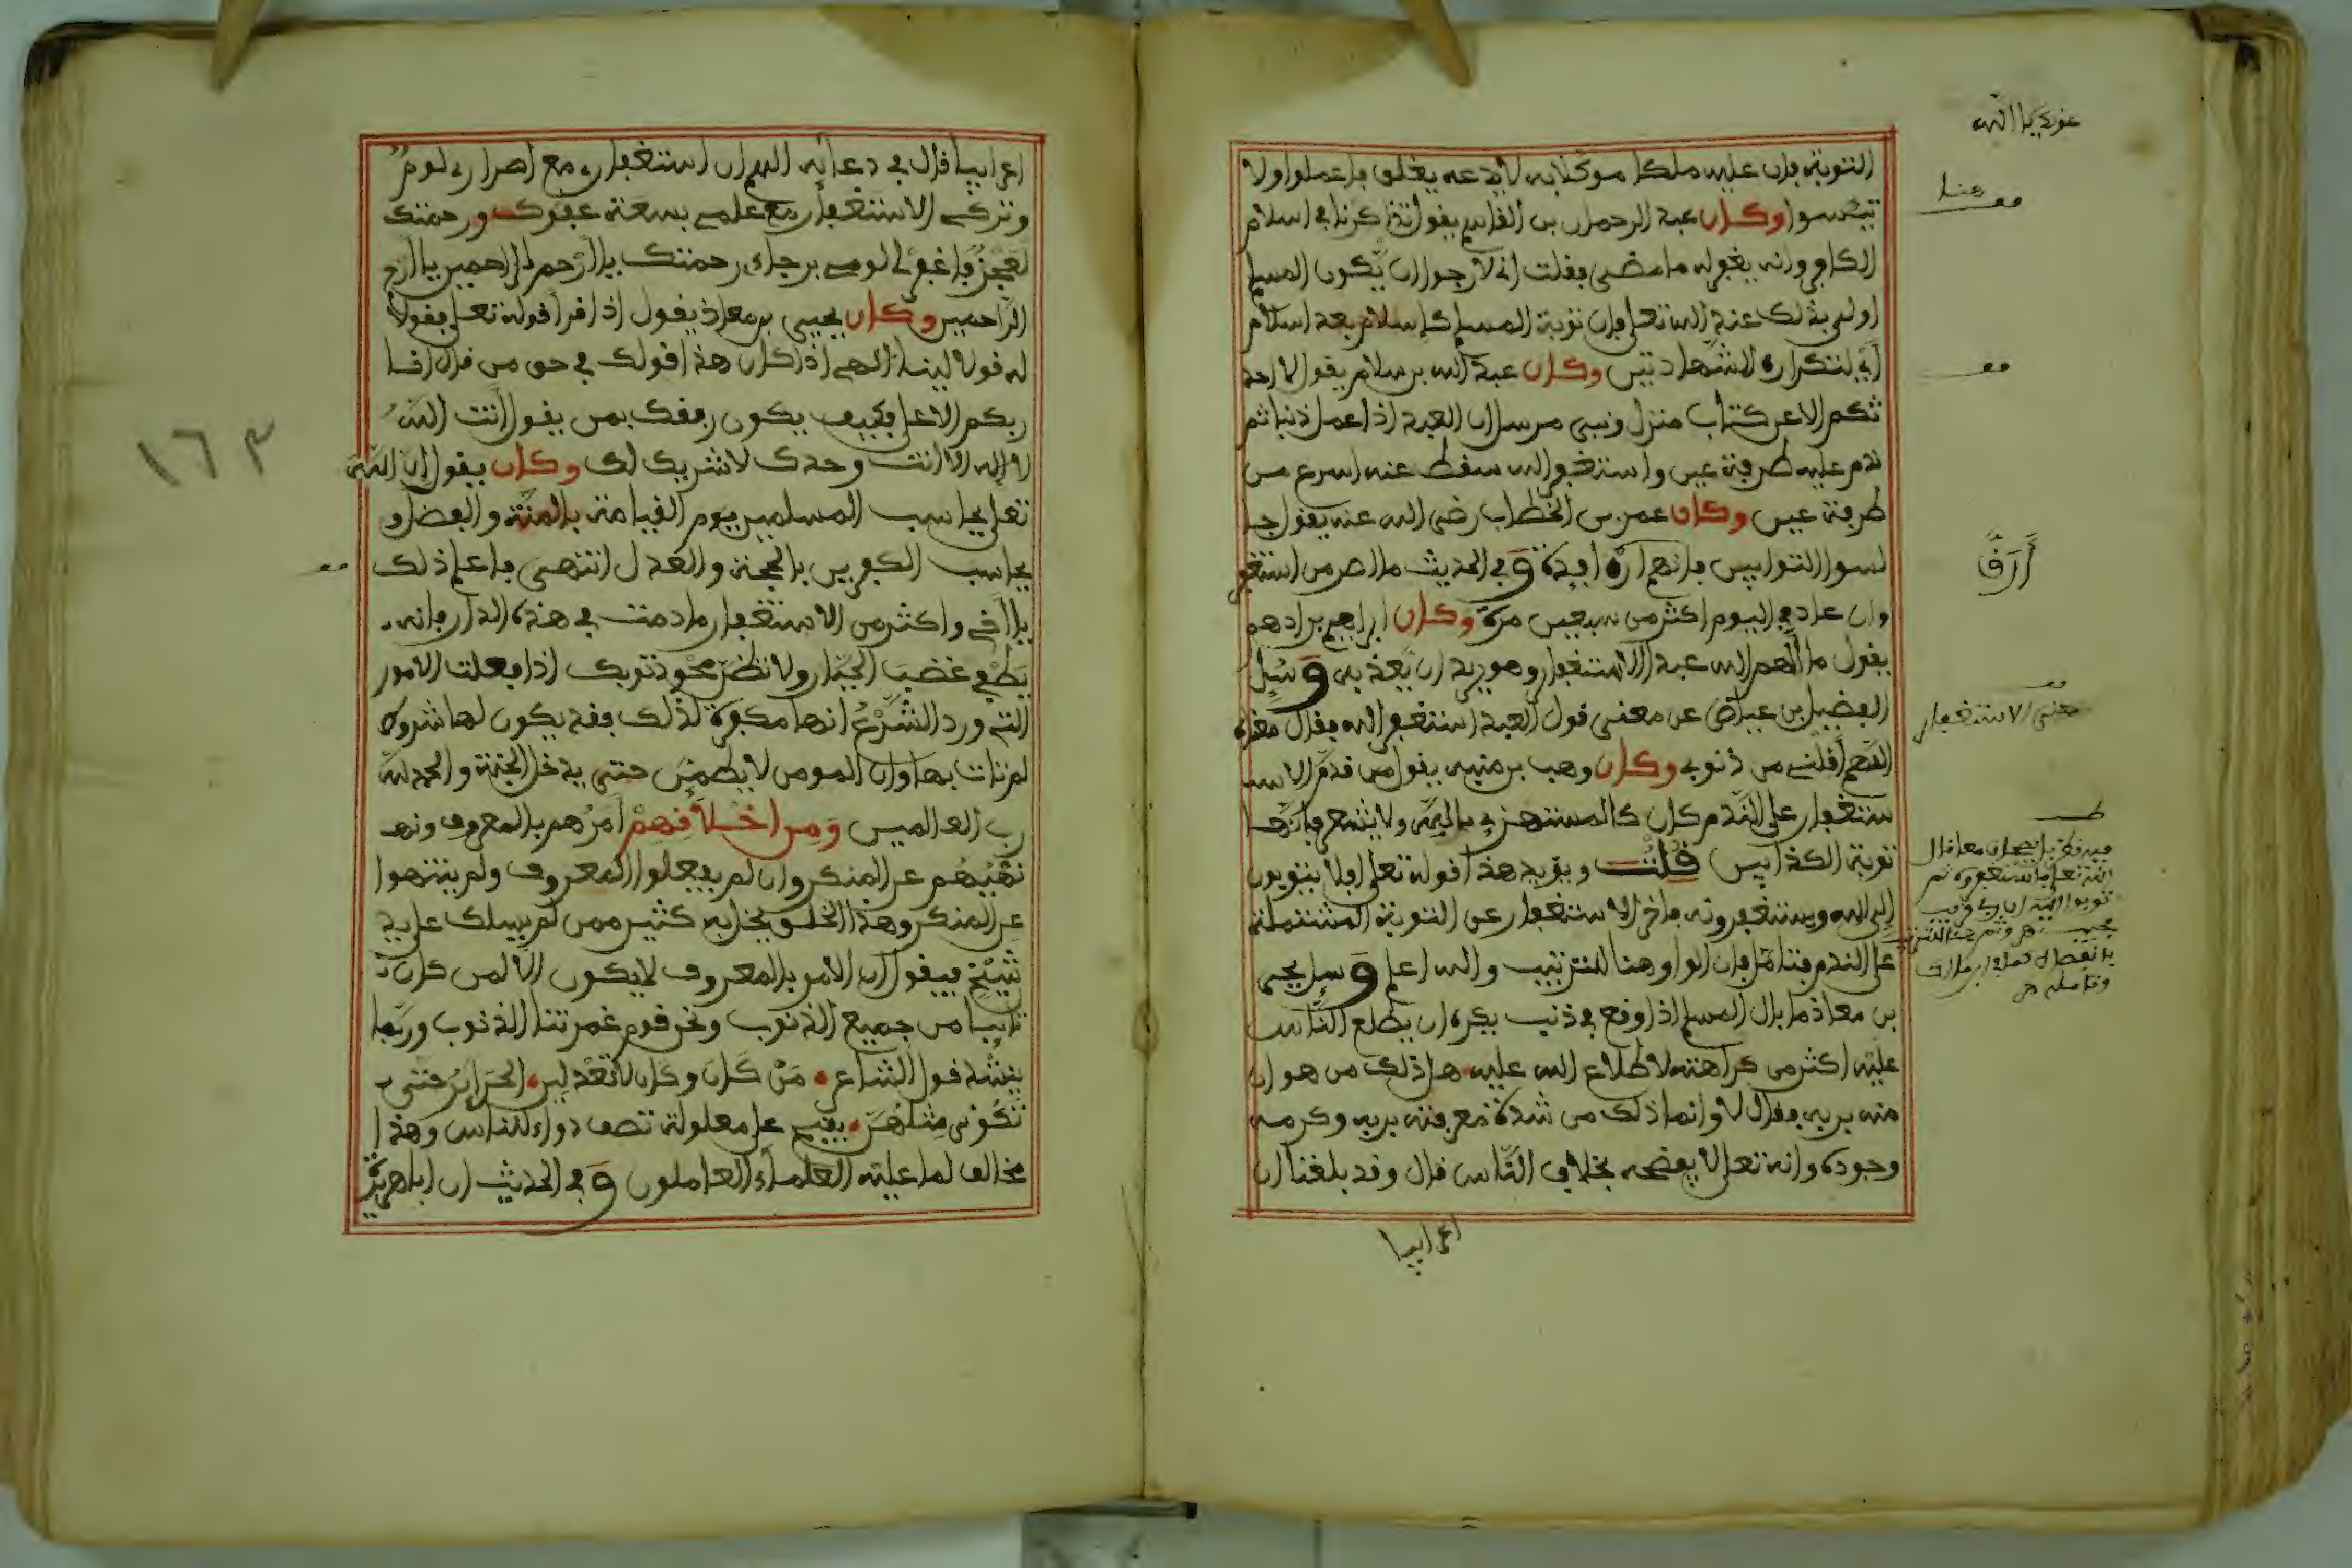 التوبة فإن عليه ملكا موكلا به لا يدعه يغلق فاعملوا ولا
تيئسوا وكان عبد الرحمان بن القاسم يقول تذاكرنا في اسلام
الكافر وانه يغفر له ما مضى فقلت اني لارجوا ان يكون المسلم
اولى بذلك عند الله تعلى فإن توبة المسلم كإسلام بعد اسلام
اي لتكراره الشهادتين وكان عبد الله بن سلام يقول لا احد
ثكم الا عن كتاب منزل ونبي مرسل ان العبد اذا عمل ذنبا ثم
ندم عليه طرفة عين واستغفر الله سقط عنه اسرع من
طرفة عين وكان عمر بن الخطاب رضى الله عنه يقول جا
لسوا التوابين فإنهم ارق افئدة وفي الحديث ما اصر من استغفر
وان عاد في اليوم اكثر من سبعين مرة وكان ابراهيم بن ادهم
يقول ما الهم الله عبدا الاستغفار وهو يريد ان يعذبه وسئل
الفضيل بن عياض عن معنى قول العبد استغفر الله فقال معناه
اللهم اقلني من ذنوبي وكان وهب بن منبه يقول من قدم الاسـ
ستغفار على الندم كان كالمستهزئ بالله ولا يشعر فانها
توبة الكذابين قلت ويؤيد هذا قوله تعلى افلا يتوبون
إلى الله ويستغفرونه فاخر الاستغفار عن التوبة المشتملة
على الندم فتامل فإن الواو هنا للترتيب والله اعلم وسئل يحيى
بن معاذ ما بال المسلم اذا وقع في ذنب يكره ان يطلع الناس
عليه اكثر من كراهته لاطلاع الله عليه هل ذلك من هوان
منه بربه فقال لا وانما ذلك من شدة معرفته بربه وكرمه
وجوده وانه تعلى لا يفضحه بخلاف الناس قال وقد بلغنا ان
اعرابيا
هنا
أرق
معنى الاستغفار
اعرابيا قال في دعائه اللهم ان استغفاري مع اصراري لوم
وتركي الاستغفار مع علمي بسعة عفوك ورحمتك
لعجز فاغفر لي لومي برجائي رحمتك يا ارحم الراحمين يا ارحم
الراحمين وكان يحيى بن معاذ يقول اذا قرأ قوله تعلى فقولا
له قولا لينا الهي اذا كان هذا قولك في حق من قال انا
ربكم الاعلى فكيف يكون رفقك بمن يقول انت الله
لا إله الا انت وحدك لا شريك لك وكان يقول إن الله
تعلى يحاسب المسلمين يوم القيامة بالمنة والفضل و
يحاسب الكفرين بالحجة والعدل انتهى فاعلم ذلك
يا اخي واكثر من الاستغفار ما دمت في هذه الدار فانه
يطفي غضب الجبار ولا تظن محو ذنوبك اذا فعلت الامور
التي ورد الشرع انها مكفرة لذلك فقد يكون لها شروط
لم تات بها وان المومن لا يطمئن حتى يدخل الجنة والحمد لله
رب العالمين ومن اخلاقهم امرهم بالمعروف ونهـ
نهيهم عن المنكر وان لم يفعلوا المعروف ولم ينتهوا
عن المنكر وهذا الخلق يخل به كثير ممن لم يسلك على يد
شيخ فيقول ان الامر بالمعروف لا يكون الا لمن كان
تايبا من جميع الذنوب ونحن قوم غمرتنا الذنوب وربما
ينشد قول الشاعر
تكوني مثلهن يقبح على معلولة تصف دواء للناس وهذا
مخالف لما عليه العلماء العاملون وفي الحديث ان ابا هريرة
١٦٣